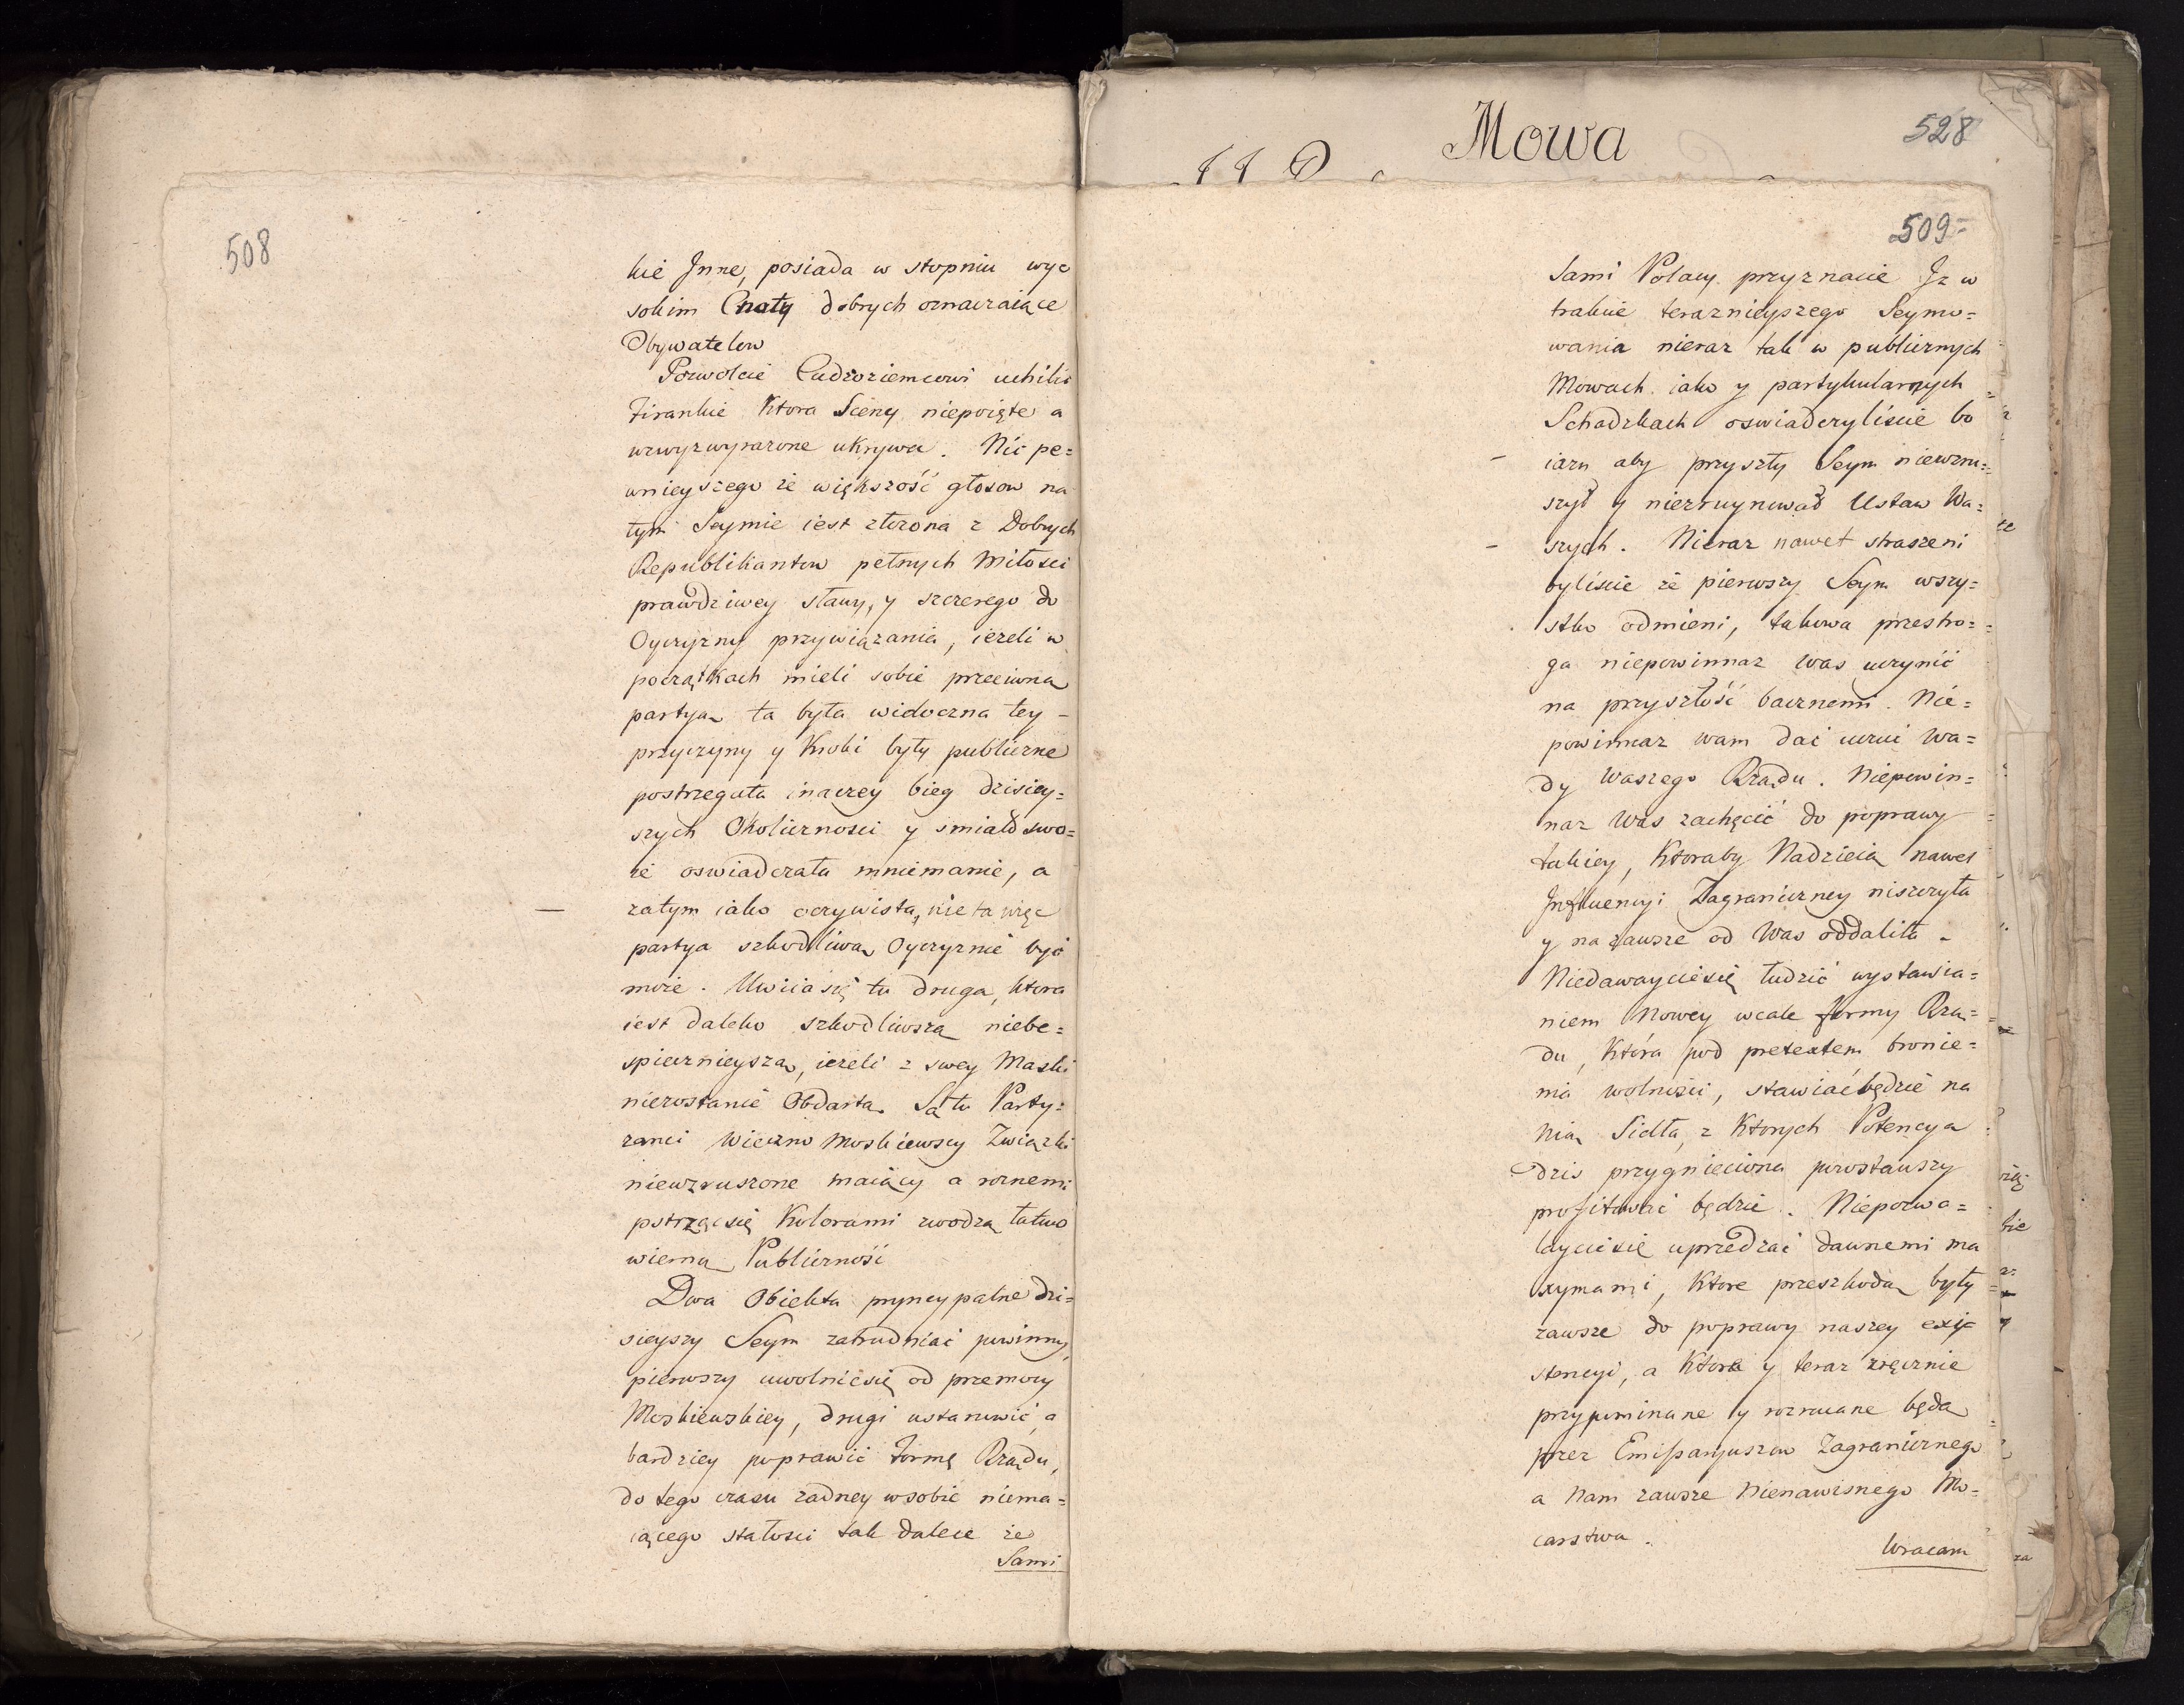 508
kie Jnne, posiada w stopniu wy=
sokim Cnoty dobrych oznaczaiące
Obywatelow
Pozwolcie Cudzoziemcowi uchilic
Firankie Ktora Sceny niepoięte a
wzwyzwyrazone ukrywa. Nic pe=
wnieyszego że większość głosow na
tym Seymie iest złożona z Dobrych
Republikantow pełnych Miłosci
prawdziwey sławy, y szczerego do
Oyczyzny przywiązania, ieżeli w
początkach mieli sobie przeciwną
partyą ta była widoczna tey –
przyczyny y Kroki były publiczne
postrzegała inaczey bieg dzisiey=
szych Okolicznosci y smiało swo=
ie oswiadczała mniemanie, a
zatym iako oczywista, nie ta więc
partya szkodliwą Oyczyznie być
może. Uwiia się tu druga, ktora
iest daleko szkodliwszą niebe=
spiecznieyszą, ieżeli z swey Maski
niezostanie Obdarta. Są tu Party=
zanci Wieczno Moskiewscy Związki
niewzruszone maiący a roznemi
pstrząc się Kolorami zwodzą łatwo
wierną Publiczność
Dwa Obiekta pryncypalne dzi=
sieyszy Seym zatrudniać powinny,
pierwszy uwolnić się od przemocy
Moskiewskiey, drugi ustanowić, a
bardziey poprawić formę Rządu,
do tego czasu żadney w sobie niema=
iącego stałosci tak dalece że
Sami
Mowa
528
509=
Sami Polacy przyznacie Jz w
trakcie teraznieyszego Seymo=
wania nieraz tak w publicznych
Mowach iako y partykularnych
Schadzkach oswiadczyliscie bo
iazn aby przyszły Seym niewzru=
szył y niezruynował Ustaw Wa=
szych. Nieraz nawet straszeni
byliscie że pierwszy Seym wszy=
stko odmieni, takowa przestro=
ga niepowinnaz Was uczynić
na przyszłość bacznemi. Nie=
powinnaz wam dać uczuć Wa=
dy Waszego Rządu. Niepowin=
naz Was zachęcić do poprawy
takiey, Ktoraby Nadzieią nawet
Jnfluencyi Zagraniczney niszczyła
y na zawsze od Was oddaliła –
Niedawaycie się łudzić wystawia=
niem Nowey wcale formy Rzą=
du, Która pod pretextem bronie=
nia wolności, stawiać będzie na
Nią Sidła, z Ktorych Potencya
dzis przygnieciona powstawszy
profitować będzie. Niepozwa=
laycie się uprzedzać dawnemi ma
xymami, Ktore przeszkodą były
zawsze do poprawy naszey exy=
stencyi, a Ktore y teraz zręcznie
przypominane y rozrucane będą
przez Emissaryuszow Zagranicznego
a Nam zawsze Nienawisnego Mo=
carstwa.
Wracam